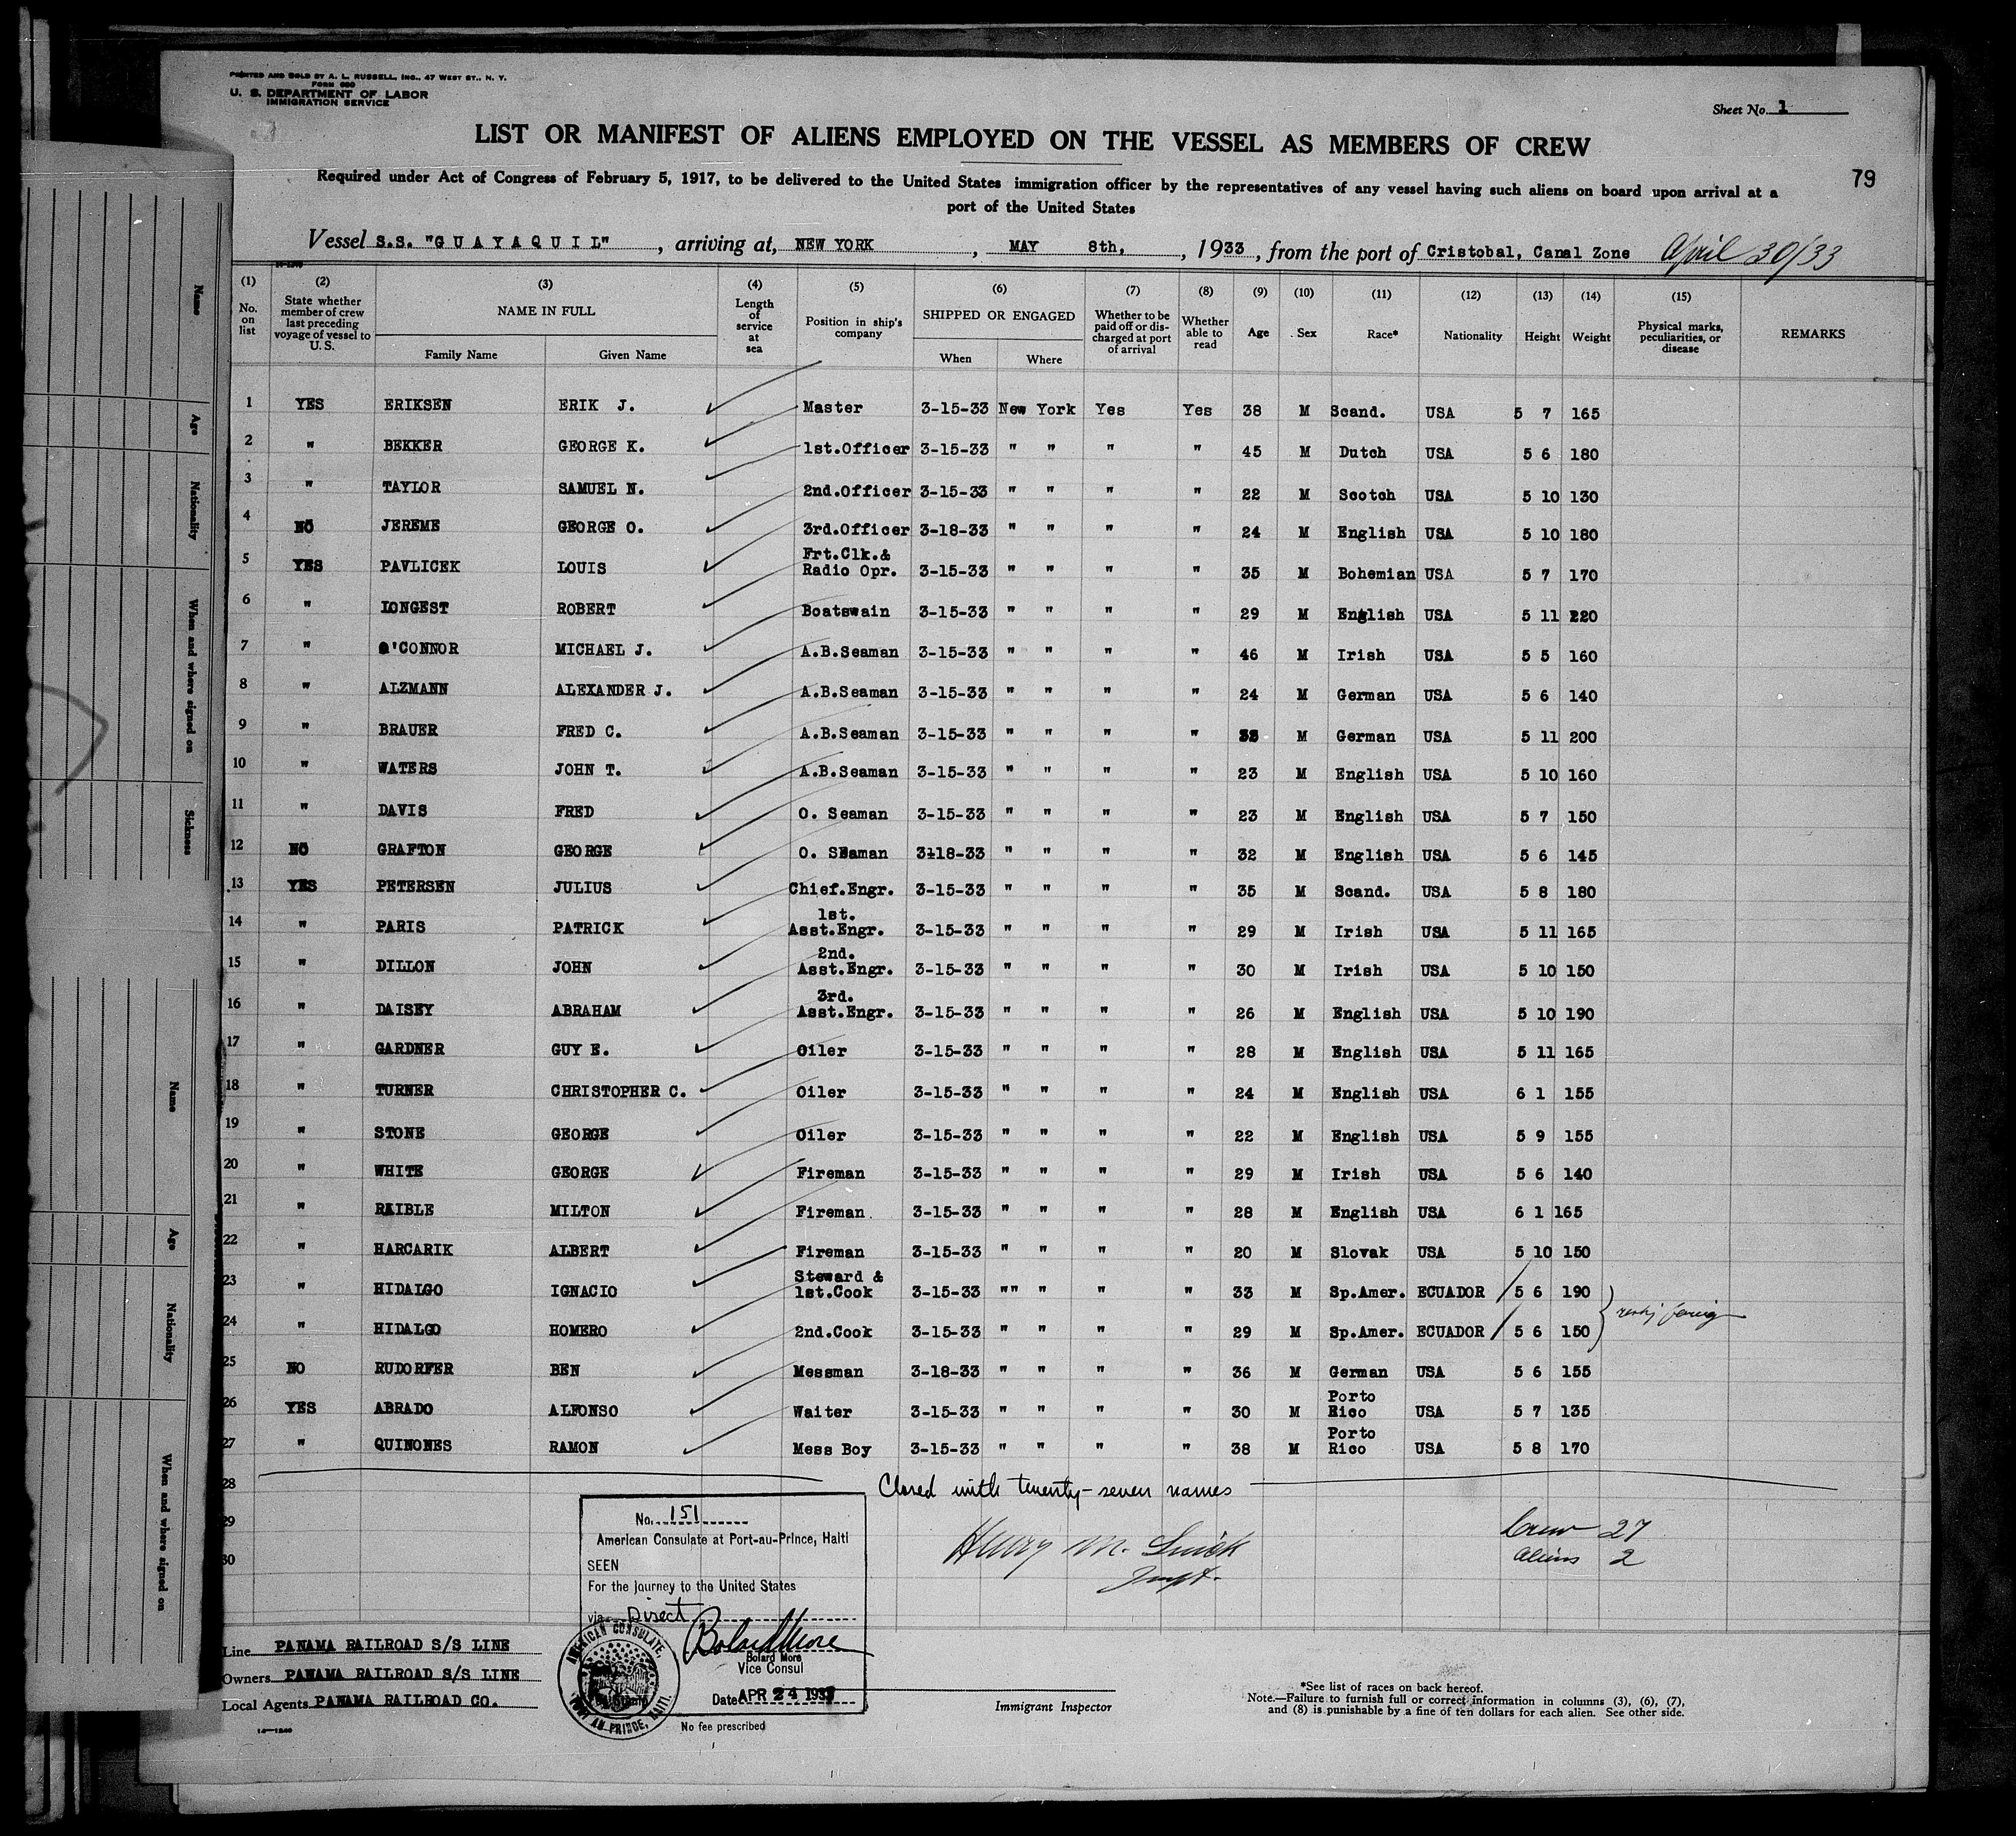 PRINTED AND SOLD BY A. L. RUSSELL, INC., 47 WEST ST., N. Y.
FORM 680
U. S. DEPARTMENT OF LABOR
IMMIGRATION SERVICE
Sheet No. 1
LIST OR MANIFEST OF ALIENS EMPLOYED ON THE VESSEL AS MEMBERS OF CREW
79
Required under Act of Congress of February 5, 1917, to be delivered to the United States immigration officer by the representatives of any vessel having such aliens on board upon arrival at a
port of the United States
Vessel S.S. "GUAYAQUIL", arriving at, NEW YORK, MAY 8th, 1933, from the port of Cristobal, Canal Zone April 30/33
(1) No. on list (2) State whether member of crew last preceding voyage of vessel to U. S. (3) NAME IN FULL Family Name Given Name (4) Length of service at sea (5) Position in ship's company (6) SHIPPED OR ENGAGED When Where (7) Whether to be paid off or discharged at port of arrival (8) Whether able to read (9) Age (10) Sex (11) Race* (12) Nationality (13) Height (14) Weight (15) Physical marks, peculiarities, or disease REMARKS
1 YES ERIKSEN ERIK J. Master 3-15-33 New York Yes Yes 38 M Scand. USA 5 7 165
2 " BEKKER GEORGE K. 1st.Officer 3-15-33 " " " " 45 M Dutch USA 5 6 180
3 " TAYLOR SAMUEL N. 2nd.Officer 3-15-33 " " " " 22 M Scotch USA 5 10 130
4 NO JEREME GEORGE O. 3rd.Officer 3-18-33 " " " " 24 M English USA 5 10 180
5 YES PAVLICEK LOUIS Frt.Clk.& Radio Opr. 3-15-33 " " " " 35 M Bohemian USA 5 7 170
6 " LONGEST ROBERT Boatswain 3-15-33 " " " " 29 M English USA 5 11 220
7 " O'CONNOR MICHAEL J. A.B.Seaman 3-15-33 " " " " 46 M Irish USA 5 5 160
8 " ALZMANN ALEXANDER J. A.B.Seaman 3-15-33 " " " " 24 M German USA 5 6 140
9 " BRAUER FRED C. A.B.Seaman 3-15-33 " " " " M German USA 5 11 200
10 " WATERS JOHN T. A.B.Seaman 3-15-33 " " " " 23 M English USA 5 10 160
11 " DAVIS FRED O. Seaman 3-15-33 " " " " 23 M English USA 5 7 150
12 NO GRAFTON GEORGE O. Seaman 3-18-33 " " " " 32 M English USA 5 6 145
13 YES PETERSEN JULIUS Chief.Engr. 3-15-33 " " " " 35 M Scand. USA 5 8 180
14 " PARIS PATRICK 1st. Asst.Engr. 3-15-33 " " " " 29 M Irish USA 5 11 165
15 " DILLON JOHN 2nd. Asst.Engr. 3-15-33 " " " " 30 M Irish USA 5 10 150
16 " DAISEY ABRAHAM 3rd. Asst.Engr. 3-15-33 " " " " 26 M English USA 5 10 190
17 " GARDNER GUY E. Oiler 3-15-33 " " " " 28 M English USA 5 11 165
18 " TURNER CHRISTOPHER C. Oiler 3-15-33 " " " " 24 M English USA 6 1 155
19 " STONE GEORGE Oiler 3-15-33 " " " " 22 M English USA 5 9 155
20 " WHITE GEORGE Fireman 3-15-33 " " " " 29 M Irish USA 5 6 140
21 " RAIBLE MILTON Fireman 3-15-33 " " " " 28 M English USA 6 1 165
22 " HARCARIK ALBERT Fireman 3-15-33 " " " " 20 M Slovak USA 5 10 150
23 " HIDALGO IGNACIO Steward & 1st.Cook 3-15-33 "" " " " 33 M Sp.Amer. ECUADOR 5 6 190
24 " HIDALGO HOMERO 2nd.Cook 3-15-33 " " " " 29 M Sp.Amer. ECUADOR 5 6 150
25 NO RUDORFER BEN Messman 3-18-33 " " " " 36 M German USA 5 6 155
26 YES ABRADO ALFONSO Waiter 3-15-33 " " " " 30 M Porto Rico USA 5 7 135
27 " QUINONES RAMON Mess Boy 3-15-33 " " " " 38 M Porto Rico USA 5 8 170
28 Closed with twenty-seven names
29
30
Crew 27
Aliens 2
Henry M.
No. 151
American Consulate at Port-au-Prince, Haiti
SEEN
For the journey to the United States
via Direct
Bolard More
Bolard More
Vice Consul
Date APR 24 1933
No fee prescribed
AMERICAN CONSULATE, PORT AU PRINCE, HAITI.
Line PANAMA RAILROAD S/S LINE
Owners PANAMA RAILROAD S/S LINE
Local Agents PANAMA RAILROAD CO.
14—1240
Immigrant Inspector
*See list of races on back hereof.
Note.—Failure to furnish full or correct information in columns (3), (6), (7),
and (8) is punishable by a fine of ten dollars for each alien. See other side.
Name
Age
Nationality
When and where signed on
Sickness
Name
Age
Nationality
When and where signed on